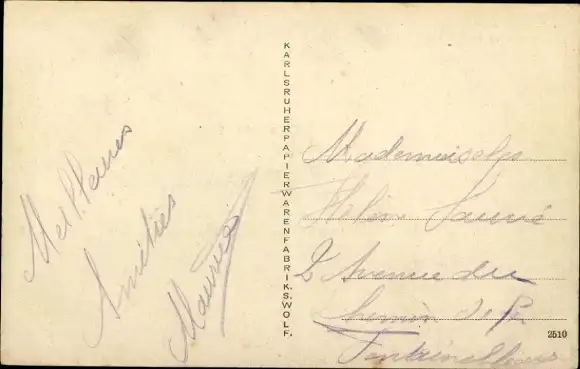 Meilleures
Amitiés
Maurice
KARLSRUHER PAPIERWARENFABRIK S. WOLF.
Mademoiselle
Hélène
2 Avenue du
Chemin de Fer
2510